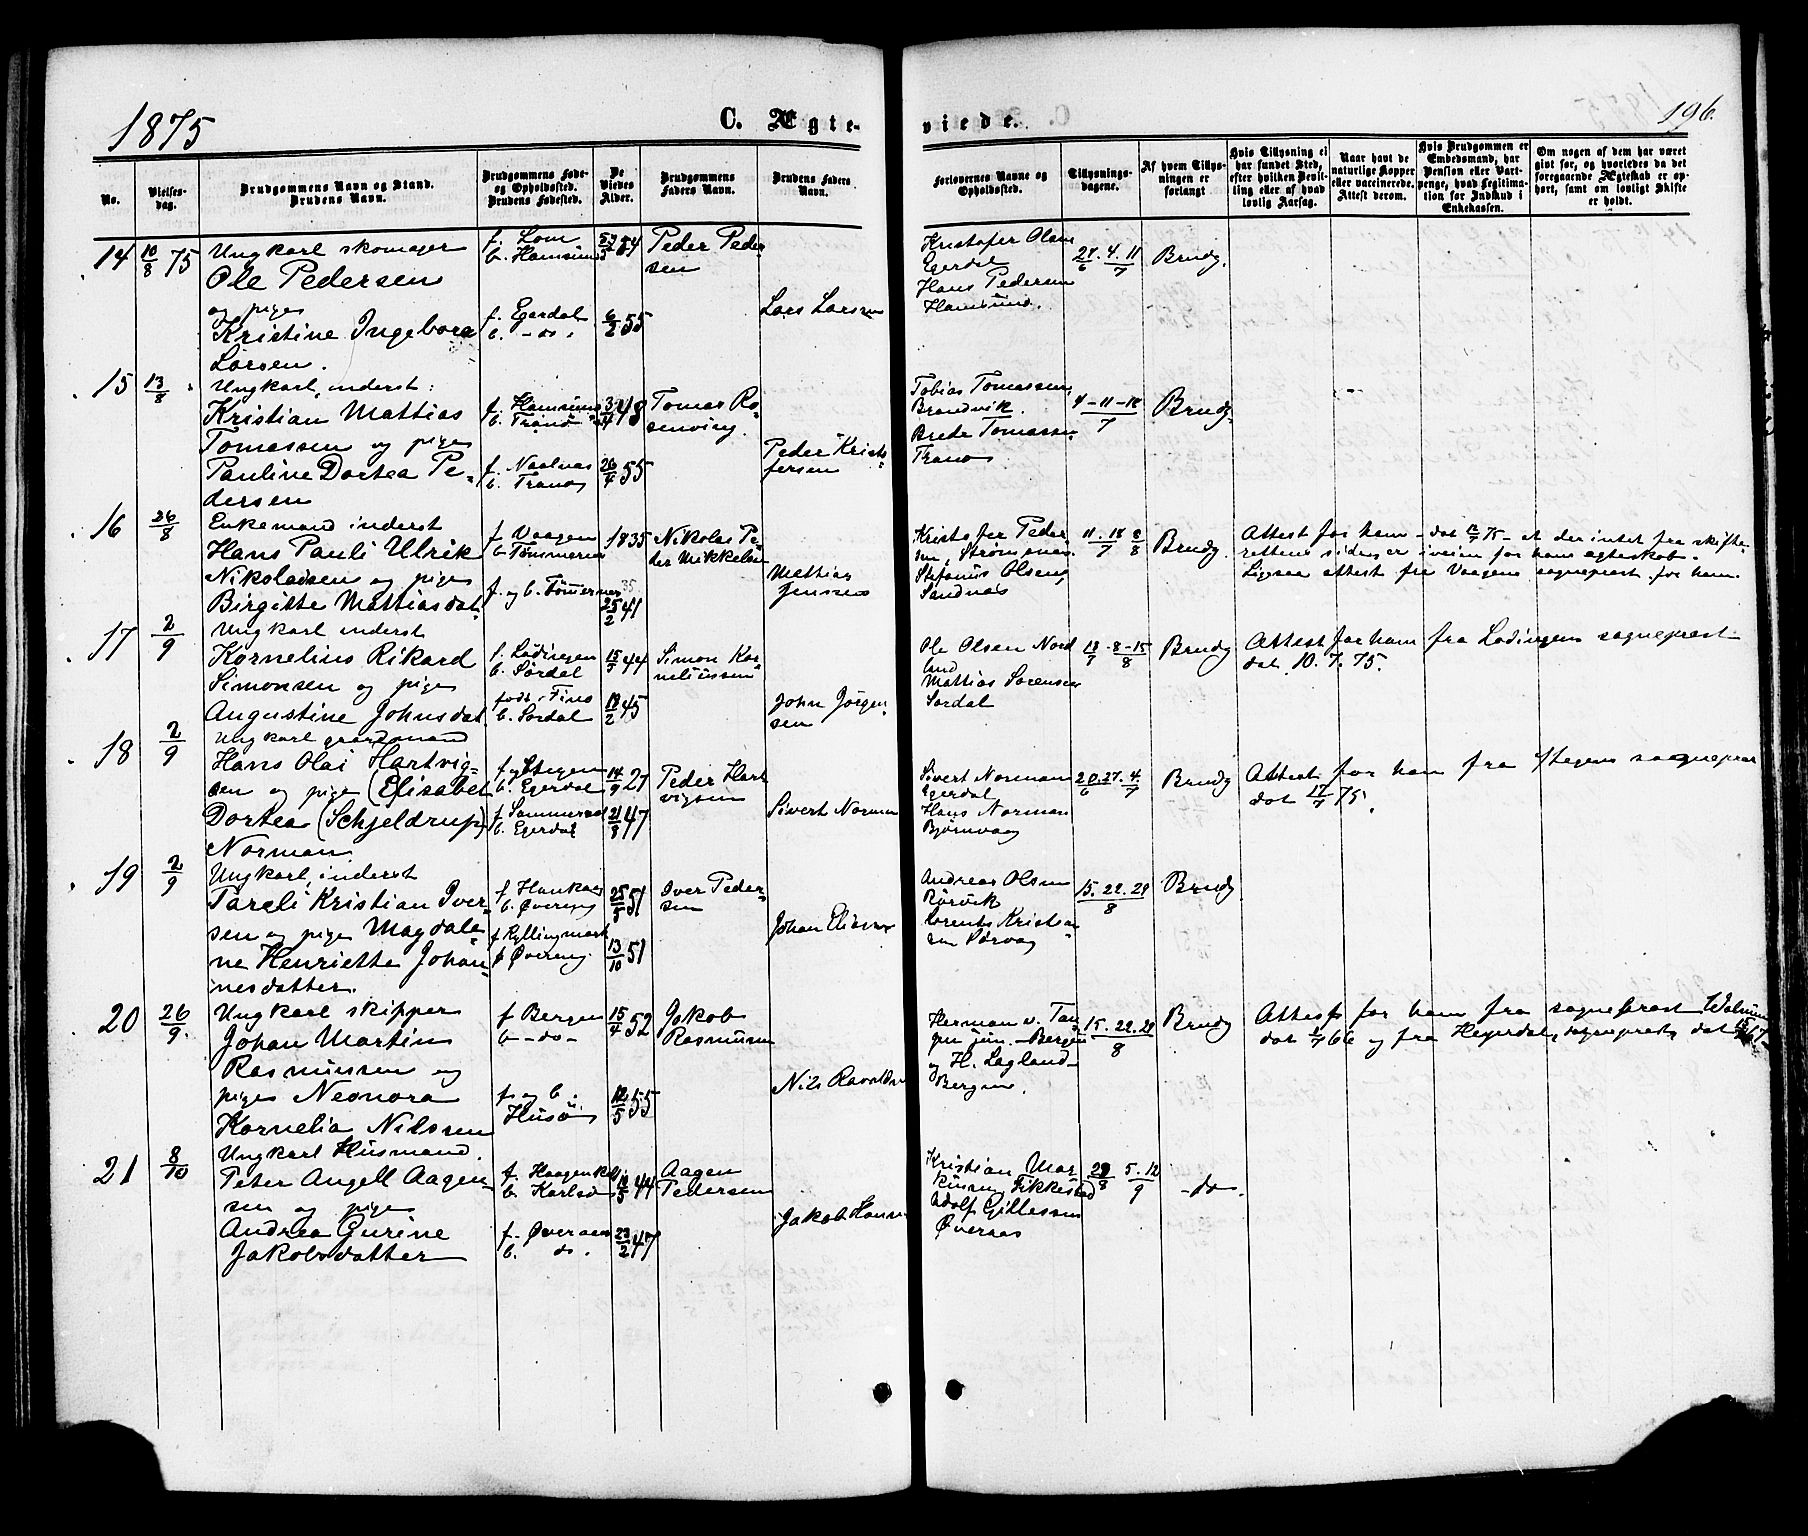 1875
C. Ægte-
viede.
196.
No.
Vielses-
dag.
Brudgommens Navn og Stand.
Brudens Navn.
Brudgommens Føde-
og Opholdssted.
Brudens Fødested.
De
Viedes
Alder.
Brudgommens
Faders Navn.
Brudens Faders
Navn.
Forlovernes Navne og
Opholdssted.
Tillysnings-
dagene.
Af hvem Tillys-
ningen er
forlangt.
Hvis Tillysning ei
har fundet Sted,
efter hvilken Bevil-
ling eller af hvad
lovlig Aarsag.
Naar havt de
naturlige Kopper
eller vaccinerede.
Attest derom.
Hvis Brudgommen er
Embedsmand, har
Pension eller Vart-
penge, hvad Legitima-
tion for Indskud i
Enkekassen.
Om nogen af dem har været
givt før, og hvorledes da det
foregaaende Ægteskab er op-
hørt, samt om lovligt Skifte
er holdt.
14
10/8 75
Ungkarl skomager
Ole Pedersen
og pige
Kristine Ingeborg
Larsen.
f. Lom
b. Hamsund
f. Egerdal
b. - do.
6/2 55
Peder Peder
sen
Lars Larsen
Kristofer Olsen
Egerdal
Hans Pedersen
Hamsund.
27. 4. 11
6 7
Brudg.
15
13/8
Ungkarl, inderst:
Kristian Mattias
Tomassen og pige
Pauline Dortea Pe-
dersen
f. Hamsund
b. Tranø
f. Naalnes
b. Tranø
48
26/4 55
Tomas Ro-
senving.
Peder Kristo-
fersen
Tobias Tomassen,
Brandvik.
Brede Tomassen
Tranø
4-11-18
7
Brudg.
16
26/8
Enkemand inderst
Hans Pauli Ulrik
Nikolaisen og pige
Birgitte Mattiasdat.
f. Vaagen
b. Tømmernes
f. og b. Tømmernes
1835
25/2 41
Nikolas Pe-
der Mikkelsen
Mattias
Jenssen
Kristofer Peder
sen, Strømsnes
Stefanus Olsen,
Sandnæs
11. 18 8
7 8
Brudg.
Attest for ham - dat 75 - at der intet fra skifte-
rettens side er iveien for hans egteskab.
Ligesaa attest fra Vaagens sogneprest for ham.
17
2/9
Ungkarl inderst
Kornelius Rikard
Simonsen og pige
Augustine Johnsdat.
f. Lødingen
b. Sørdal
født i Fins
b. Sørdal
44
18/2 45
Simon Kor-
neliussen
John Jørgen
sen
Ole Olsen Nord
lund
Mattias Sørensen
Sørdal
18. 8-15
7 8
Brudg
Attest for ham fra Lødingens sogneprest
dat. 10. 7. 75.
18
2/9
Ungkarl gaardmand
Hans Olai Hartvig-
sen og pige (Elisabet
Dortea (Schjeldrup)
Norman
f. Stegen
b. Egerdal
f. Sommersel
b. Egerdal
14/9 27
21/8 47
Peder Hart
vigsen
Sivert Norman
Sivert Norman
Egerdal
Hans Norman
Bjørnvaag
20. 27. 4.
6 7
Brudg
Attest for ham fra Stegens sogneprest
dat 17/7 75.
19
2/9
Ungkarl, inderst
Pareli Kristian Iver-
sen og pige Magdale-
ne Henriette Johan-
nesdatter.
b. Øvereng
f Kyllingmark
b Øvereng
25/5 51
13/10 51
Iver Peder-
sen
Johan Eliassen
Andreas Olsen
Rørvik
Lorents Kristian-
sen Pørvag
15. 22. 29
8
Brudg
20
26/9.
Ungkarl skipper
Johan Martin
Rasmussen og
pige Neonora
Kornelia Nilssen
f Bergen
b - do -
f. og b.
Husø
15/4 52
12/5 55
Jakob
Rasmussen
Herman v. Tan
gen jun. - Bergen
og H. Lagland-
Bergen.
15. 22. 29
8
Brudg
Attest for ham fra sogneprest
dat 66 og fra sogneprest, dat
21
8/10
Ungkarl Husmand.
Peter Angell Aagen-
sen og pige
Andrea Gurine
Jakobsdatter
b. Karlsø
f. Øveraas
b. do.
44
23/2 47
Aagen
Pedersen
Jakob Hansen
Kristian Mar
kussen, Fikkestad
Adolf Gillessen
Øveraas
29 5. 12
8 9
- do -